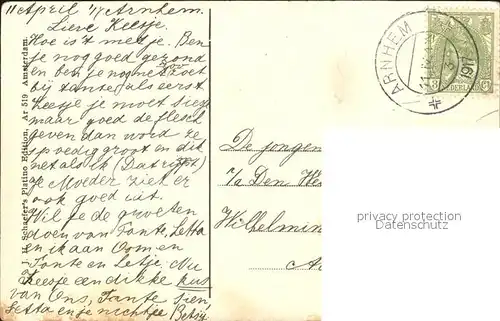 11 April '17 Arnhem.
Lieve Keesje.
Hoe is 't met je. Ben
je nog goed gezond
en ben je nog zoo zoet
bij tante, als eerst
Keesje je moet
maar goed de flesch
geven dan word ze
spoedig groot en dik
net als ik (Dat
Moeder ziet er
ook goed uit.
Wil je de groeten
doen van Tante, Letta
en ik aan Oom en
Tante en Letje. Nu
Keesje een dikke kus
van Ons, Tante Sien,
Letta en je nichtje Betsy
J. H. Schaefer's Platino Edition, Ar 519 Amsterdam.
ARNHEM
1917
NEDERLAND
De jongen
p/a Den
Wilhelmin
A
privacy protection
Datenschutz